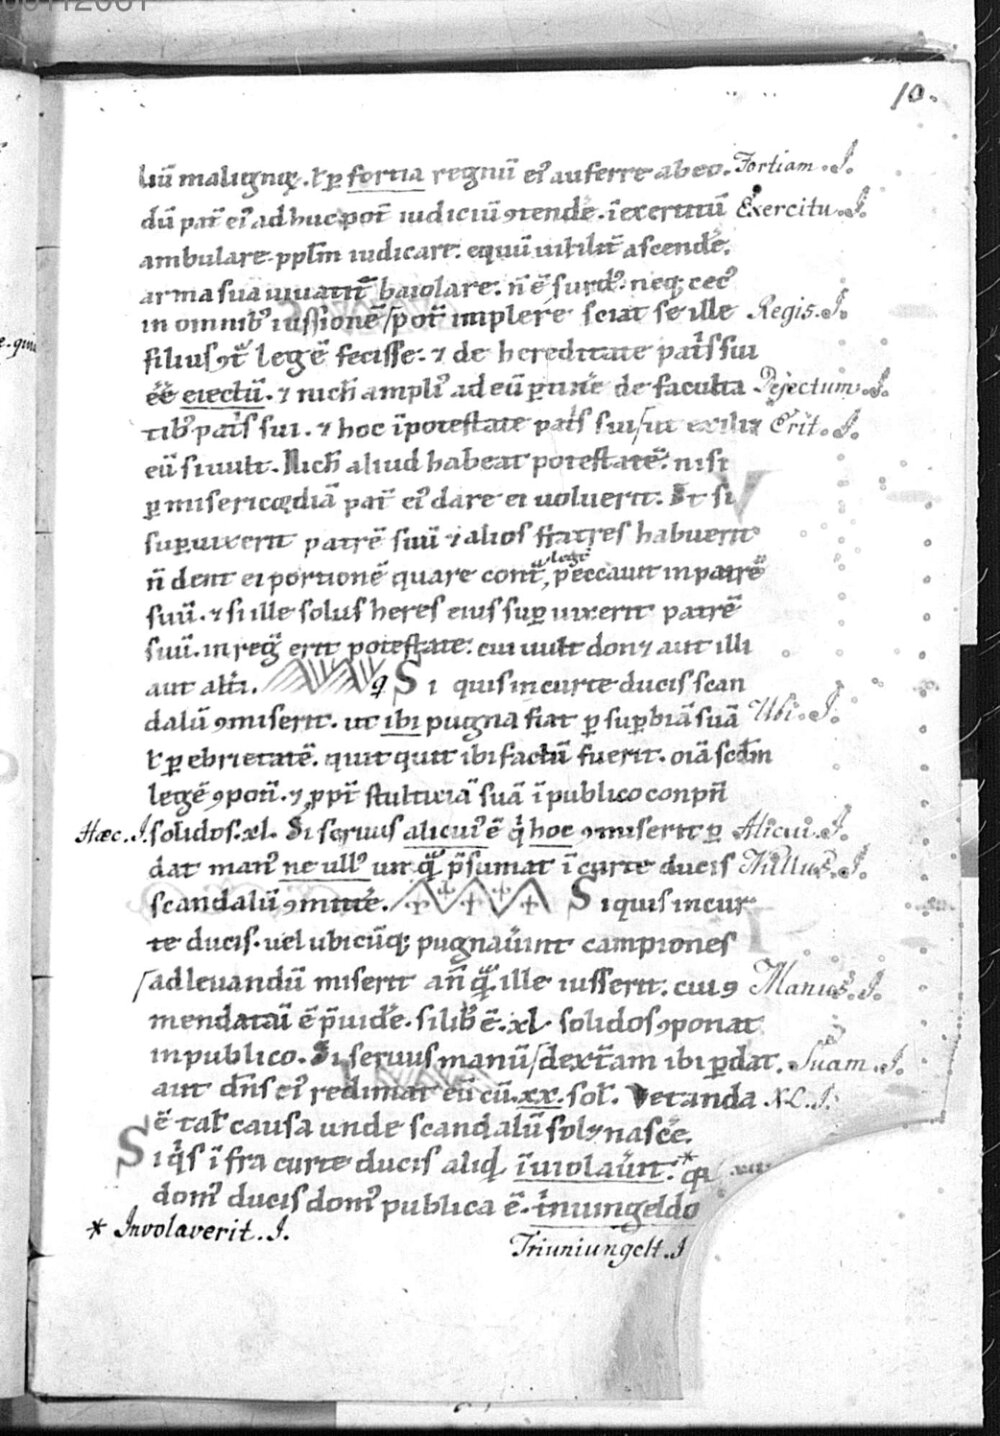 10.
liũ malignoꝝ. ł ꝑ fortia regnũ ei᷒ auferre ab eo. Fortiam .J.
dũ pat̃ ei᷒ ad huc pot̃ iudiciũ ꝯtendẽ. ĩ exercitũ Exercitu .J.
ambulare ppl̃m iudicare. equũ uiriliť ascendẽ.
arma sua uiuaciť baiolare. ñ ẽ surd᷒. neq; cec᷒
in omnib᷒ iussionẽ / pot̃ implere sciat se ille Regis .J.
filius ꝯť legẽ fecisse. ⁊ de hereditate pat̃s sui
ẽẽ eiectũ. ⁊ nich̃ ampli᷒ ad eũ ꝑtinẽ de faculta Dejectum .J.
tib᷒ pat̃s sui. ⁊ hoc ĩ potestate pat̃s sui / ut Erit .J.
eũ si uult. Nich̃ aliud habeat potestatẽ. nisi
ꝑ misericordiã pat̃ ei᷒ dare ei uoluerit. Et si
suꝑuixerit patrẽ suũ ⁊ alios fratres habuerit
ñ dent ei portionẽ quare cont̃ legẽ peccauit in patrẽ
suũ. ⁊ si ille solus heres eius suꝑ uixerit patrẽ
suũ. in reg̃ erit potestate. cui uult don⁊ aut illi
aut alťi. Si quis in curte ducis scan
dalũ ꝯmiserit. ut ibi pugna fiat ꝑ suꝑbiã suã Ubi .J.
ł ꝑ ebrietatẽ. quit quit ibi factũ fuerit. oĩa scd̃m
legẽ ꝯpoñ. ⁊ ꝓpť stulticiã suã ĩ publico conpñ
Hæc .J. solidos .xl. Si seruus alicui᷒ ẽ q̇ hoc ꝯmiserit ꝑ Alicui .J.
dat man᷒ ne ull᷒ un q̃ p̃sumat ĩ curte ducis Nullus .J.
scandalũ ꝯmittẽ. Si quis in cur
te ducis. uel ubicũq; pugnaũint campiones
/ ad leuandũ miserit añ q̃ ille iusserit. cui ꝯ Manus .J.
mendatũ ẽ p̃uidẽ. si lib̃ ẽ .xl. solidos ꝯponat
in publico. Si seruus manũ / dexťam ibi ꝑdat. Suam .J.
aut dñs ei᷒ redimat eũ cũ .xx. sol. Vetanda XL .J.
ẽ tal̃ causa unde scandalũ sol⁊ nascẽ.
Si q̇s ĩfra curte ducis aliq̃ ĩuiolaũit.* q̃
dom᷒ ducis dom᷒ publica ẽ. tⁱniungeldo
* Involaverit .J.
Triuniungelt .J